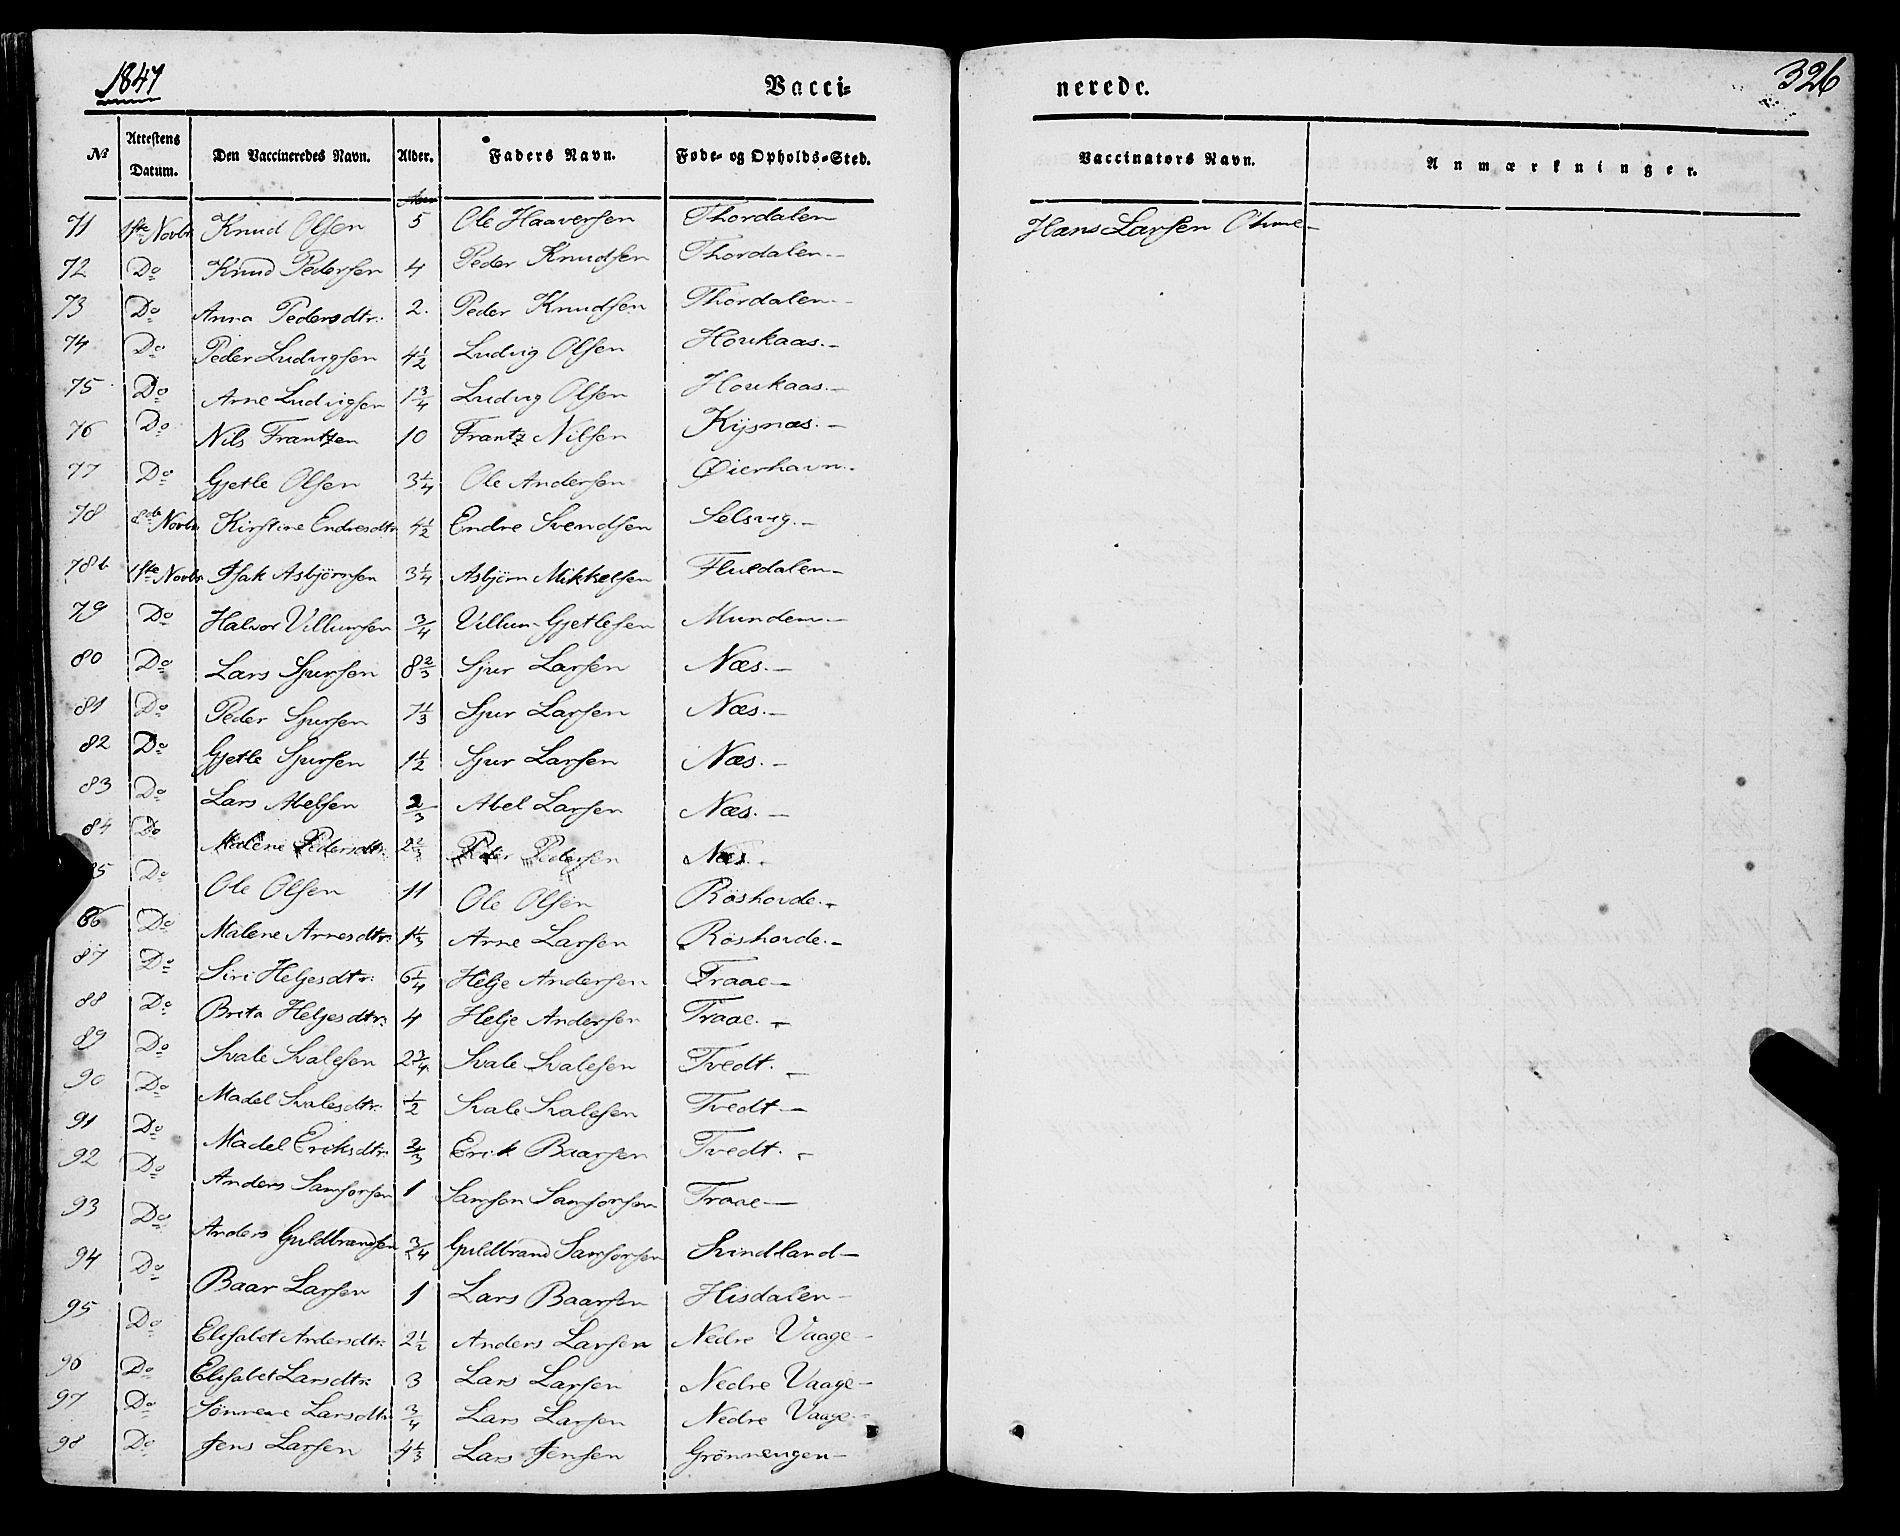 1847
Vacci-
nerede.
326
No
Attestens Datum.
Den Vaccineredes Navn.
Alder.
Faders Navn.
Føde- og Opholds-Sted.
Vaccinators Navn.
Anmærkninger.
71 1ste Novbr Knud Olsen 5 Ole Haaversen Thordalen Hans Larsen
72 Do Knud Pedersen 4 Peder Knudsen Thordalen
73 Do Anna Pedersdtr. 2. Peder Knudsen Thordalen
74 Do Peder Ludvigsen 4½ Ludvig Olsen Houkaas.
75 Do Arne Ludvigsen 1¾ Ludvig Olsen Houkaas.
76 Do Nils Frantzen 10 Frantz Nilsen Kysnæs.
77 Do Gjetle Olsen 3¼ Ole Andersen Øierhavn.
78 8de Novbr Kirstine Endresdtr 4½ Endre Svendsen Selsvig.
78b 1ste Novbr Isak Asbjörnsen 3¼ Asbjörn Mikkelsen Fluedalen
79 Do Halvor Villumsen ¾ Villum Gjetlesen Mundem
80 Do Lars Sjursen 8⅔ Sjur Larsen Næs.
81 Do Peder Sjursen 7⅓ Sjur Larsen Næs.
82 Do Gjetle Sjursen 1½ Sjur Larsen Næs.
83 Do Lars Abelsen ⅔ Abel Larsen Næs.
84 Do Malene Pedersdtr. 2⅔ Peder Pedersen Næs.
85 Do Ole Olsen 11 Ole Olsen Röshovde.
86 Do Malene Arnesdtr. 1⅓ Arne Larsen Röshovde.
87 Do Siri Heljesdtr. 6¼ Helje Andersen Traae
88 Do Brita Heljesdtr. 4 Helje Andersen Traae.
89 Do Svale Svalesen 2¾ Svale Svalesen Tvedt.
90 Do Madel Svalesdtr. ½ Svale Svalesen Tvedt
91 Do Madel Eriksdtr. ⅔ Erik Baarsen Tvedt.
92 Do Anders Samsonsen 1 Samson Samsonsen Traae
93 Do Anders Guldbrandsen ¾ Guldbrand Samsonsen Svindland
94 Do Baar Larsen 1 Lars Baarsen Hisdalen
95 Do Elisabet Andersdtr. 2½ Anders Larsen Nedre Vaage
96 Do Elisabet Larsdtr. 3 Lars Larsen Nedre Vaage
97 Do Sönneve Larsdtr ¾ Lars Larsen Nedre Vaage.
98 Do Jens Larsen 4⅓ Lars Jensen Grönnengen